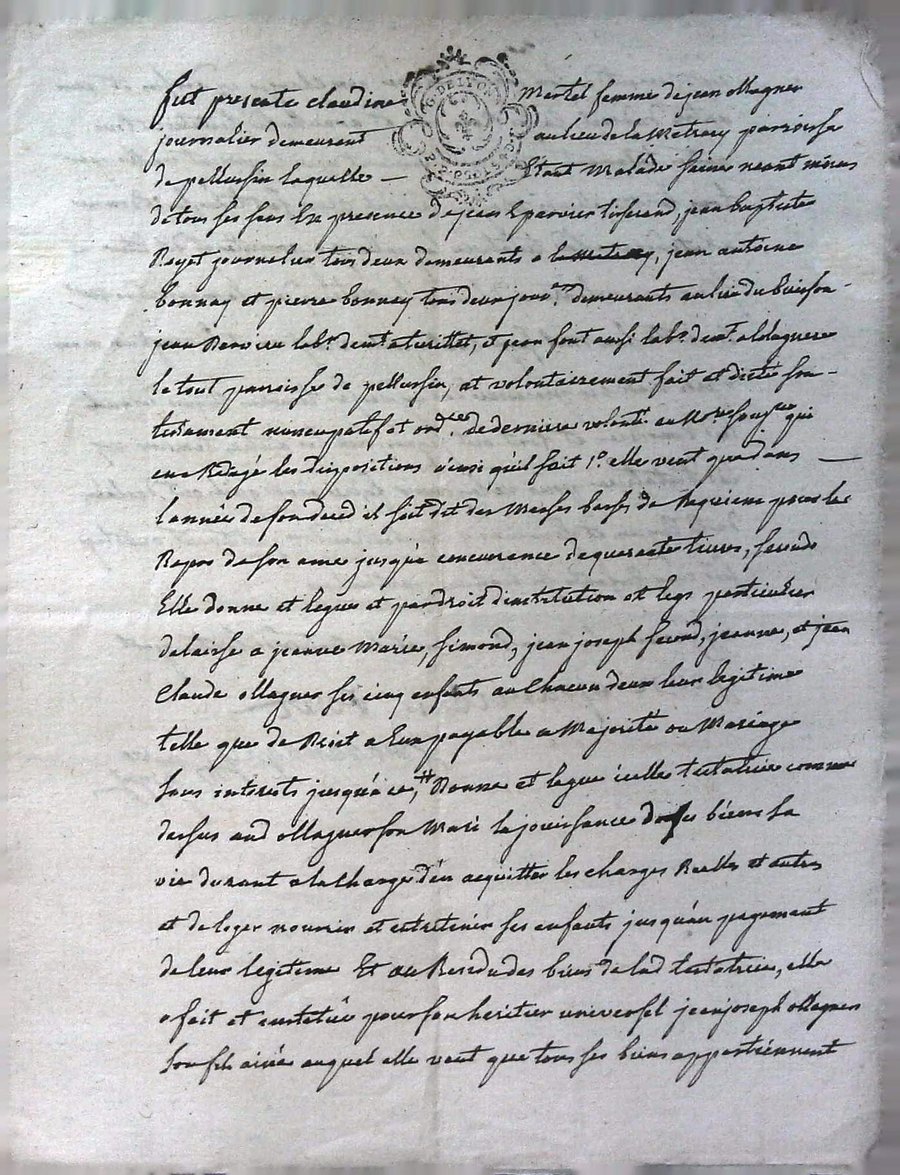 fut presente claudine Martel femme de jean Magner
journalier demeurant au lieu de la paroisse
de pellussin laquelle — Etant Malade saine neant moins
de tous ses sens En presence de jean Eparvier tisserand, jean baptiste
Royet journalier tous deux demeurants a, jean antoine
bonnay et pierre bonnay tous deux jour.rs demeurants au lieu du buisson
jean labr. demt. a, et jean font aussi labr. demt. a
le tout paroisse de pellussin, et volontairement fait et dicté son
testament nuncupatif et ord.ce de derniere volonté au No.re soussigné qui
en a Redigé les dispositions ainsi quil suit 1°. elle veut que dans —
lannée de son deced il soit dit des Messes basses de Requiem pour le
Repos de son ame jusqua concurance de quarante livres, second
Elle donne et legue et par droit dinstitution et legs particulier
delaisse a jeanne Marie, simond, jean joseph second, jeanne, et jean
Claude Magner ses cinq enfants au Chacun deux leur legitime
telle que de Droit a Eux payable a Majorité ou Mariage
sans interets jusqua ce, # Donne et legue icelle testatrice comme
dessus aud Magner son Mari la jouissance de ses biens sa
vie durant a la Charge den acquitter les charges Reelles et autres
et de loger nourrir et entretenir ses enfants jusquau payement
de leur legitime Et au Residu des biens de lad testatrice, elle
a fait et institué pour son heritier universel jean joseph Magner
son fils ainé auquel elle veut que tous ses biens appartiennent